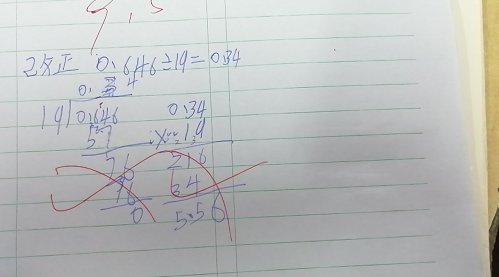 2改正 0.646÷19=0.34
0.34
19 0.646 0.34
57 ×1.9
76 216
76 64
0 5.56